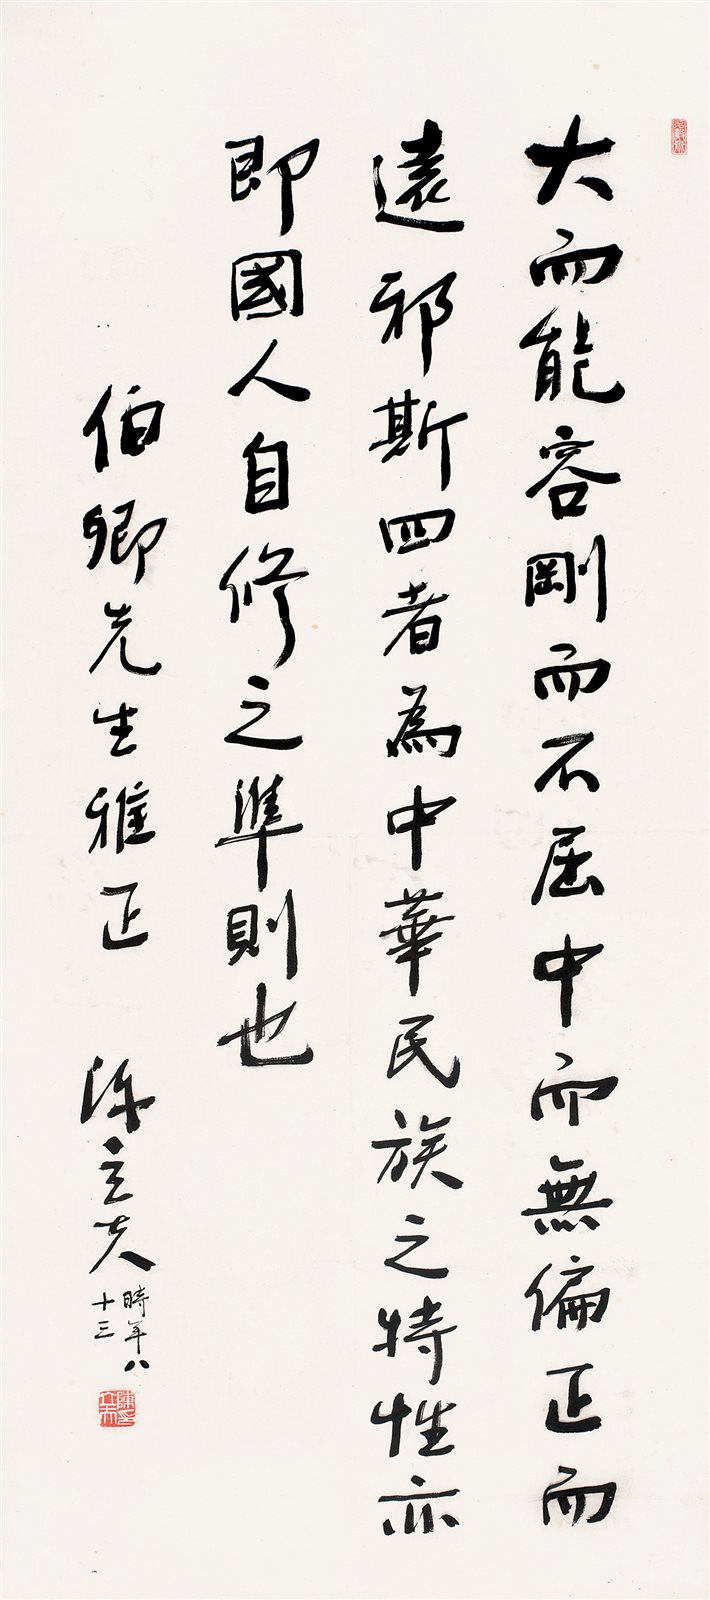 大而能容剛而不屈中而無偏正而
遠邪斯四者為中華民族之特性亦
即國人自修之準則也
伯卿先生雅正 陳立夫
時年八
十三